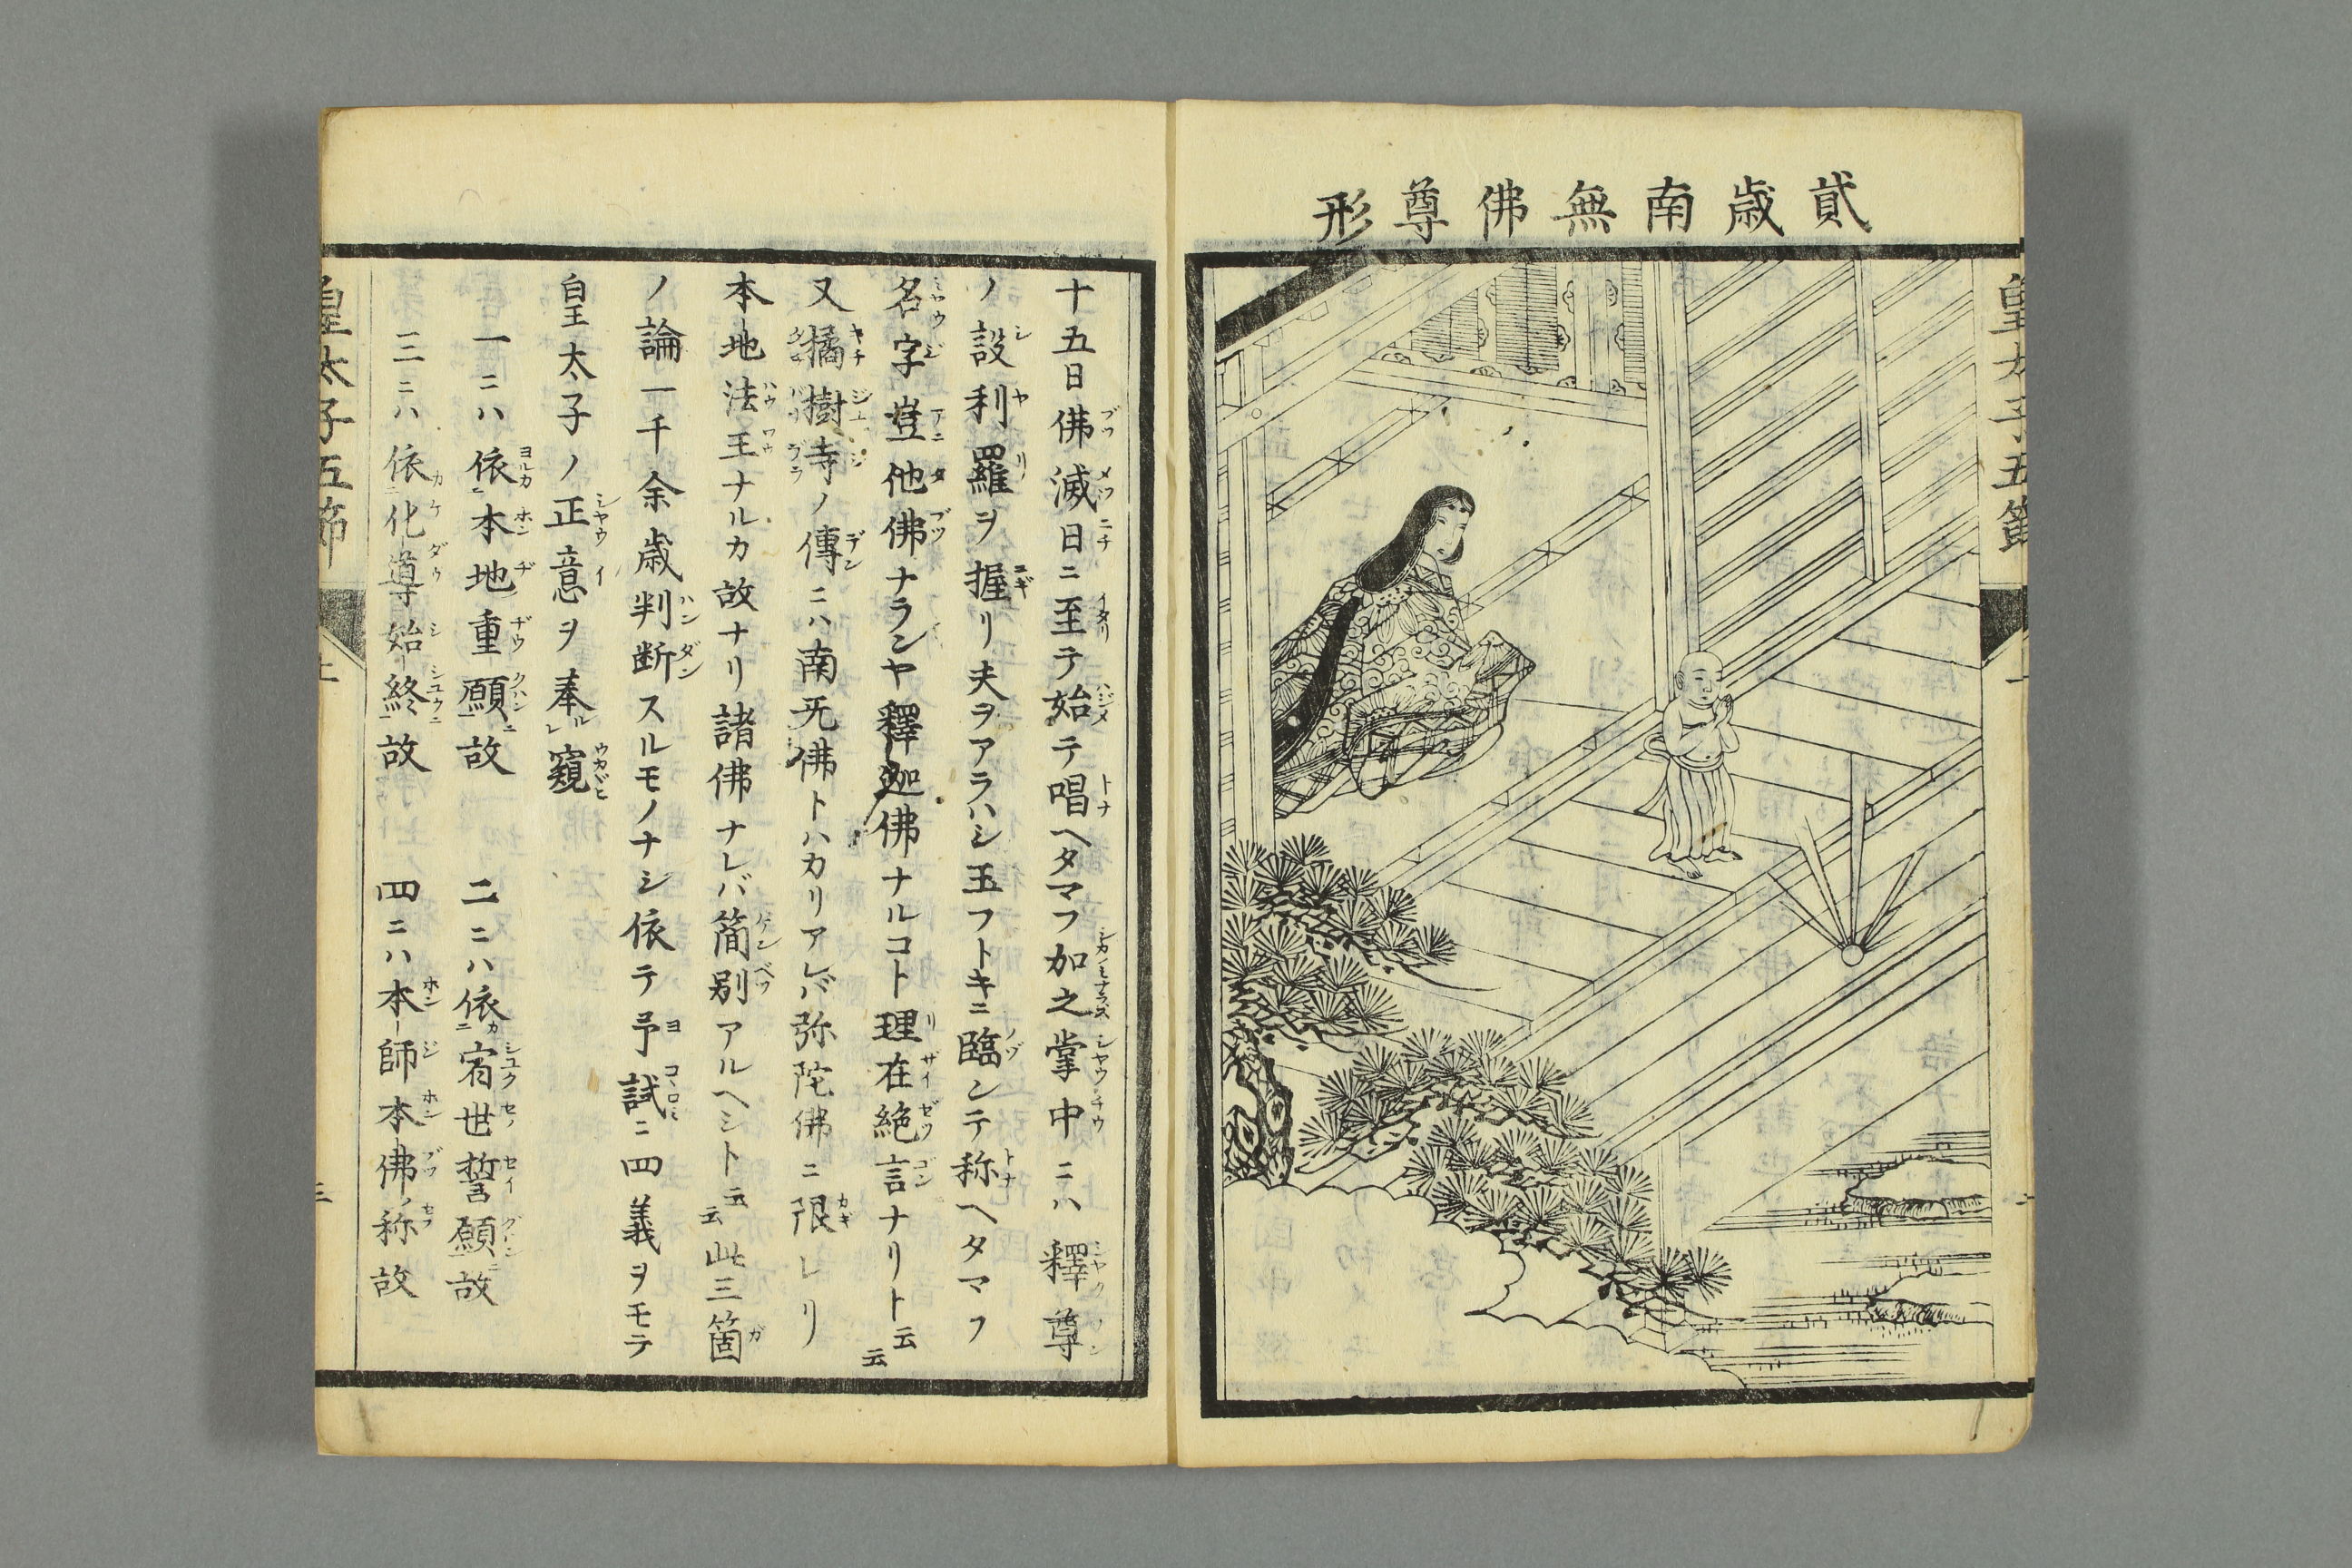 貮歳南無佛尊形
皇太子五節
十五日佛滅日ニ至テ始テ唱ヘタマフ加之掌中ニハ釋尊
ノ設利羅ヲ握リ夫ヲアラハシ玉フトキニ臨ンテ称ヘタマフ
名字豈他佛ナランヤ釋迦佛ナルコト理在絶言ナリト云云
又橘樹寺ノ傳ニハ南旡佛トハカリアレバ弥陀佛ニ限レリ
本地法王ナルカ故ナリ諸佛ナレバ簡別アルヘシト云云此三箇
ノ論一千余歳判断スルモノナシ依テ予試ニ四義ヲモテ
皇太子ノ正意ヲ奉窺
一ニハ依本地重願故　二ニハ依宿世誓願故
三ニハ依化導始終故　四ニハ本師本佛ノ称故
皇太子五節　上　三